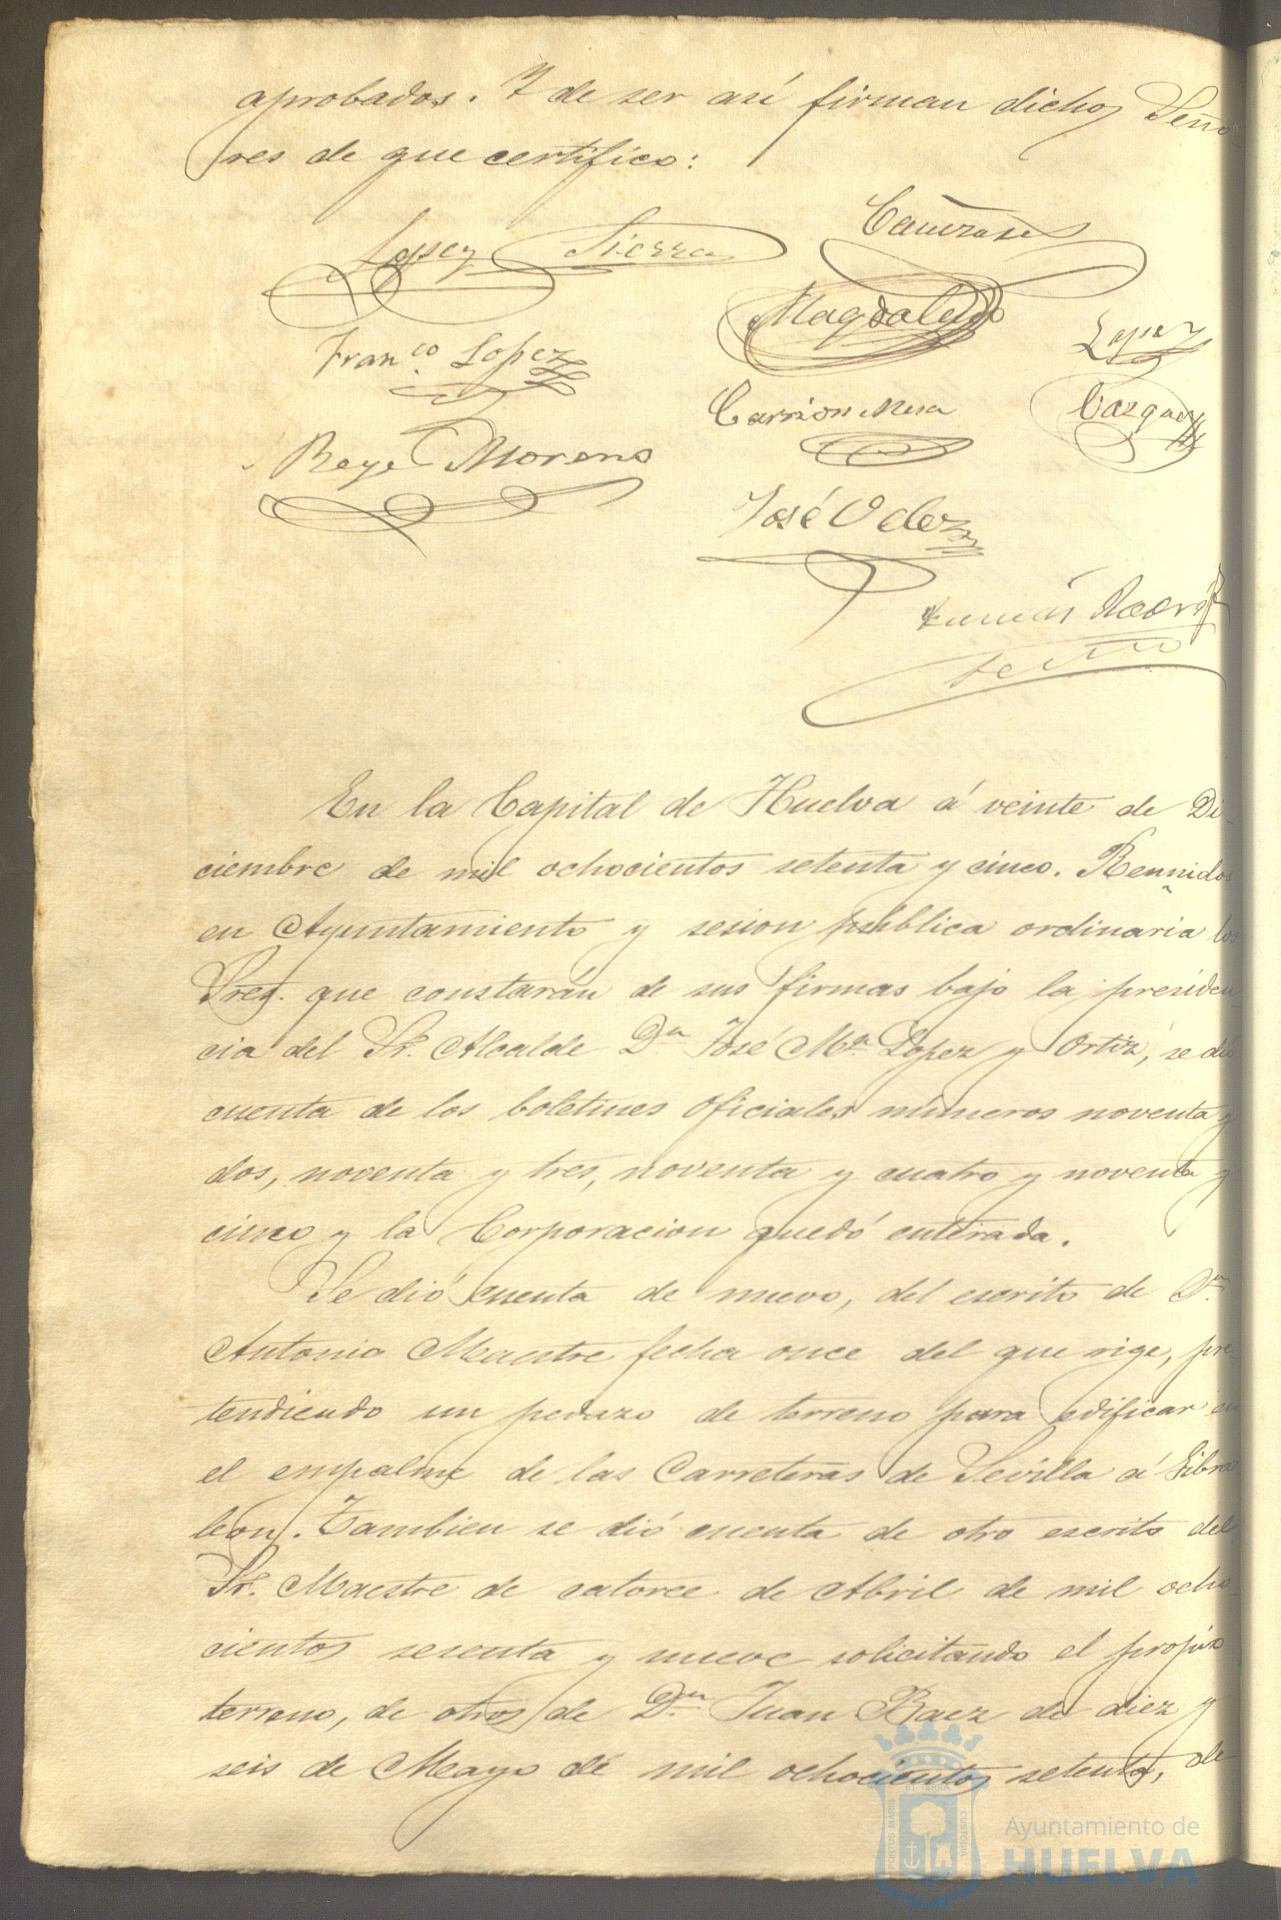 aprobados. Y de ser así firman dichos Seño
res de que certifico:
Lopez Sierra
Magdaleno
Franco Lopez
Lopez
Carrion Mesa
Vazquez
Reye Moreno
José Velez
En la Capital de Huelva á veinte de Di-
ciembre de mil ochocientos setenta y cinco. Reunidos
en Ayuntamiento y sesion pública ordinaria los
Sres. que constarán de sus firmas bajo la presiden
cia del Sr. Alcalde Dn José Ma Lopez y Ortiz, se dió
cuenta de los boletines oficiales números noventa y
dos, noventa y tres, noventa y cuatro y noventa y
cinco y la Corporacion quedó enterada.
Se dió cuenta de nuevo, del escrito de Dn
Antonio Maestre fecha once del que rige, pre-
tendiendo un pedazo de terreno para edificar en
el empalme de las Carreteras de Sevilla á Gibra
leon. Tambien se dió cuenta de otro escrito del
Sr. Maestre de catorce de Abril de mil ocho-
cientos sesenta y nueve solicitando el propio
terreno, de otros de Dn Juan Baez de diez y
seis de Mayo de mil ochocientos setenta, de
Ayuntamiento de
HUELVA